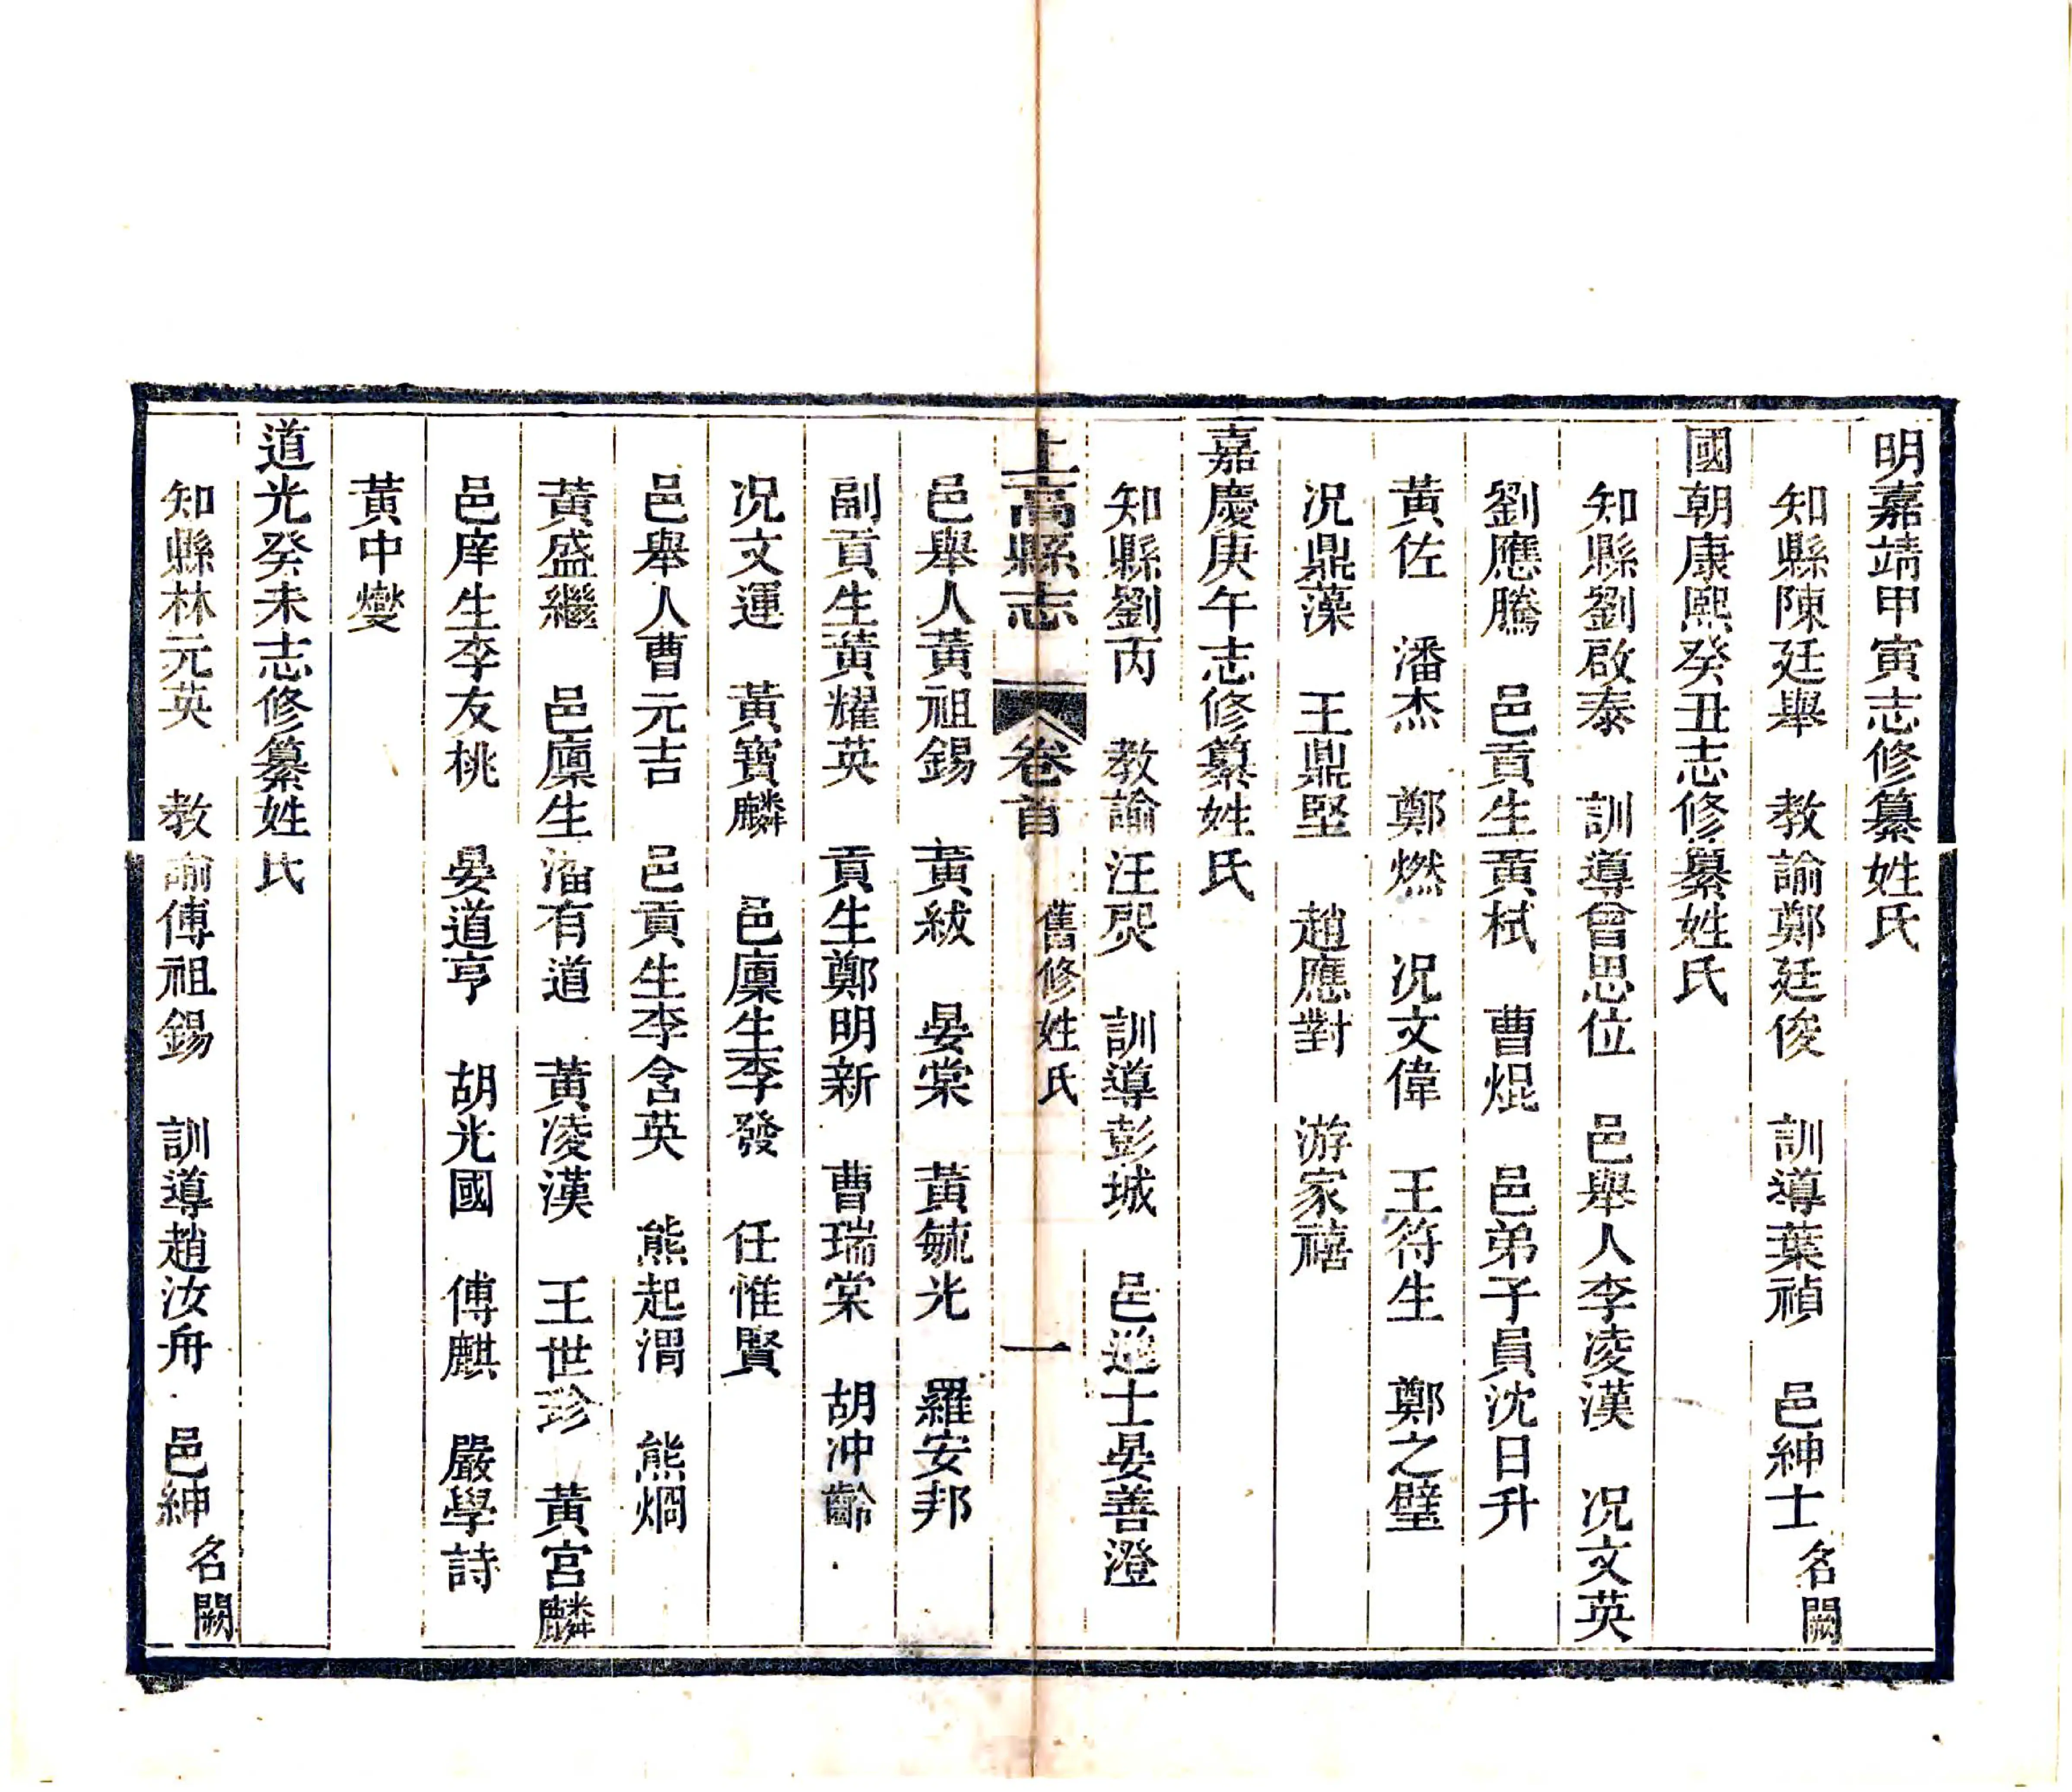 明嘉靖甲寅志修纂姓氏
知縣陳廷舉　教諭鄭廷俊　訓導葉禎　邑紳士名闕
國朝康熙癸丑志修纂姓氏
知縣劉啟泰　訓導曾思位　邑舉人李凌漢　况文英
劉應騰　邑貢生黃栻　曹焜　邑弟子員沈日升
黃佐　潘杰　鄭燃　况文偉　王符生　鄭之璧
况鼎藻　王鼎堅　趙應對　游家禧
嘉慶庚午志修纂姓氏
知縣劉丙　教諭汪煚　訓導彭城　邑進士晏善澄
上高縣志　卷首　舊修姓氏　一
邑舉人黃祖錫　黃紱　晏棠　黃毓光　羅安邦
副貢生黃耀英　貢生鄭明新　曹瑞棠　胡冲齡
况文運　黃寶麟　邑廩生李發　任惟賢
邑舉人曹元吉　邑貢生李含英　熊起渭　熊烱
黃盛繼　邑廩生潘有道　黃凌漢　王世珍　黃宫麟
邑庠生李友桃　晏道亨　胡光國　傅麒　嚴學詩
黃中燮
道光癸未志修纂姓氏
知縣林元英　教諭傅祖錫　訓導趙汝舟　邑紳名闕